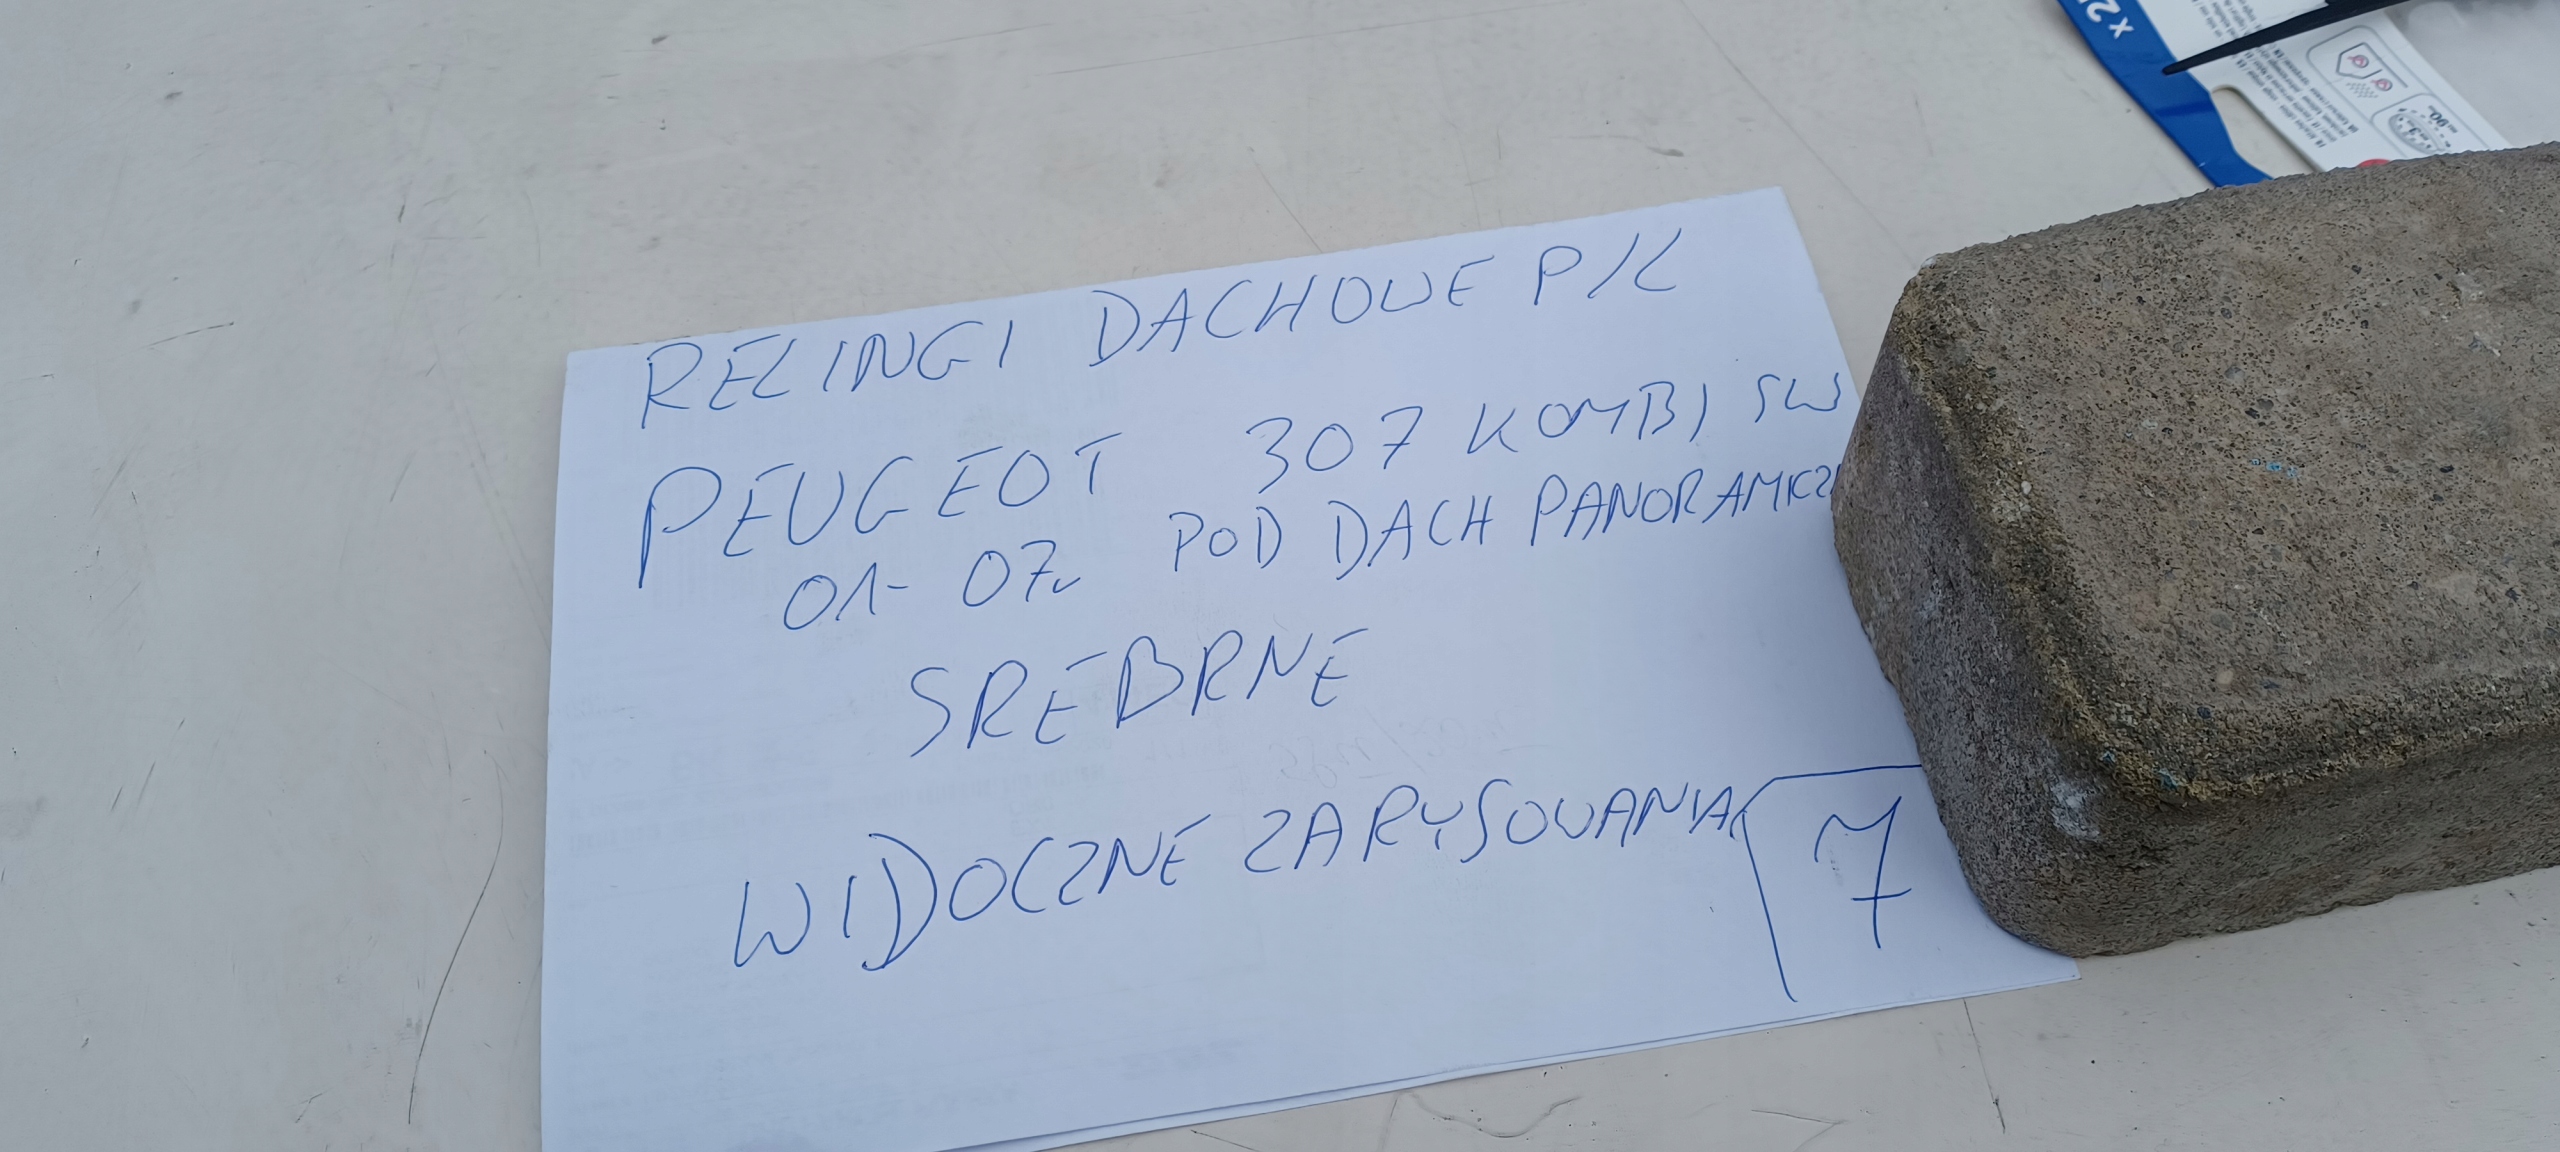 RELINGI DACHOWE P/L
PEUGEOT 307 KOMBI SW
01-07r POD DACH PANORAMICZ
SREBRNE
WIDOCZNE ZARYSOWANIA
7
x 2